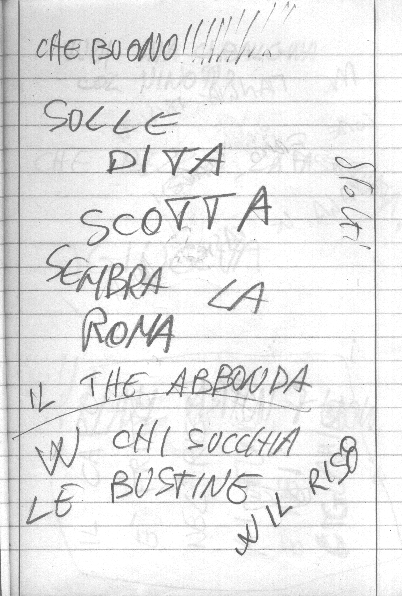 CHE BUONO!!!!!!!!!!
SULLE
DITA
SCOTTA
SEMBRA LA
ROMA
IL THE ABBONDA
W CHI SUCCHIA
LE BUSTINE
W IL RISO